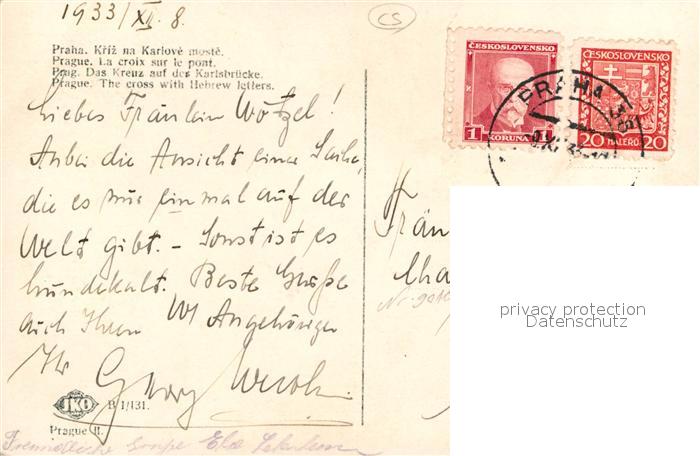 1933/XII. 8.
CS
Praha. Kříž na Karlově mostě.
Prague. La croix sur le pont.
Prag. Das Kreuz auf der Karlsbrücke.
Prague. The cross with Hebrew letters.
ČESKOSLOVENSKO
1 KORUNA 1
ČESKOSLOVENSKO
20 HALÉŘŮ 20
PRAHA 38
Liebes Fräulein Wötzel!
Anbei die Ansicht einer Sache,
die es nur einmal auf der
Welt gibt. – Sonst ist es
hundekalt. Beste Grüße
auch Ihren Angehörigen
Ihr
Georg
Frän
Nr.
privacy protection
Datenschutz
JKO
B 1/131.
Prague II.
Freundliche Grüße Else